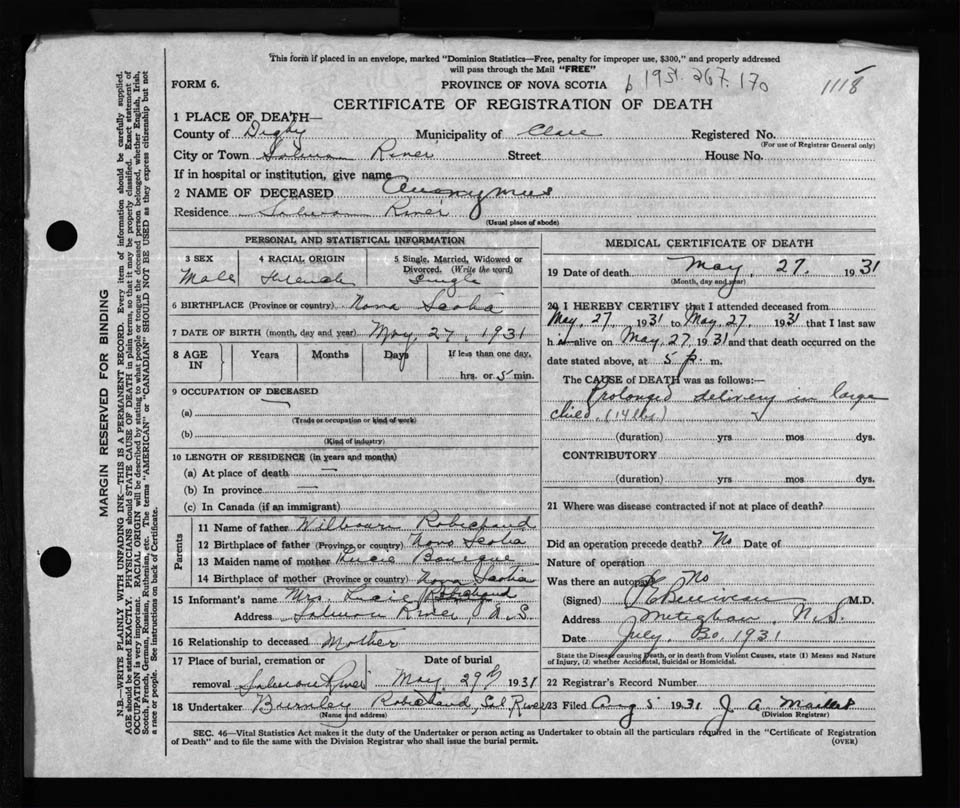 This form if placed in an envelope, marked "Dominion Statistics—Free, penalty for improper use, $300," and properly addressed
will pass through the Mail "FREE"
FORM 6. PROVINCE OF NOVA SCOTIA 1931. 267. 170 1118
CERTIFICATE OF REGISTRATION OF DEATH
1 PLACE OF DEATH—
County of Digby Municipality of Clare Registered No.
(For use of Registrar General only)
City or Town Salmon River Street House No.
If in hospital or institution, give name
2 NAME OF DECEASED Anonymus
Residence Salmon River
(Usual place of abode)
PERSONAL AND STATISTICAL INFORMATION
3 SEX 4 RACIAL ORIGIN 5 Single, Married, Widowed or
Divorced. (Write the word)
Male French Single
6 BIRTHPLACE (Province or country) Nova Scotia
7 DATE OF BIRTH (month, day and year) May 27, 1931
8 AGE IN Years Months Days If less than one day,
hrs. or 5 min.
9 OCCUPATION OF DECEASED
(a)
(Trade or occupation or kind of work)
(b)
(Kind of industry)
10 LENGTH OF RESIDENCE (in years and months)
(a) At place of death —
(b) In province —
(c) In Canada (if an immigrant)
Parents
11 Name of father Wilbourn Robichaud
12 Birthplace of father (Province or country) Nova Scotia
13 Maiden name of mother Lucie Bourque
14 Birthplace of mother (Province or country) Nova Scotia
15 Informant's name Mrs. Lucie Robichaud
Address Salmon River, N.S.
16 Relationship to deceased Mother
17 Place of burial, cremation or Date of burial
removal Salmon River May 29th 1931
18 Undertaker Burnley Robichaud, Sal River
(Name and address)
MEDICAL CERTIFICATE OF DEATH
19 Date of death May, 27. 1931
(Month, day and year)
20 I HEREBY CERTIFY that I attended deceased from
May, 27. 1931 to May, 27. 1931 that I last saw
h alive on May, 27 1931 and that death occurred on the
date stated above, at 5 p. m.
The CAUSE of DEATH was as follows:—
Prolonged delivery in large
child. (14 lbs.)
(duration) yrs mos dys.
CONTRIBUTORY
(duration) yrs mos dys.
21 Where was disease contracted if not at place of death?
Did an operation precede death? No Date of
Nature of operation
Was there an autopsy No
(Signed) Belliveau M.D.
Address Meteghan, N.S.
Date July, 30. 1931
State the Disease causing Death, or in death from Violent Causes, state (1) Means and Nature
of Injury, (2) whether Accidental, Suicidal or Homicidal.
22 Registrar's Record Number
23 Filed Aug 5 1931. J A
(Division Registrar)
SEC. 46—Vital Statistics Act makes it the duty of the Undertaker or person acting as Undertaker to obtain all the particulars required in the "Certificate of Registration
of Death" and to file the same with the Division Registrar who shall issue the burial permit. (OVER)
MARGIN RESERVED FOR BINDING
N.B.—WRITE PLAINLY WITH UNFADING INK—THIS IS A PERMANENT RECORD. Every item of information should be carefully supplied.
AGE should be stated EXACTLY. PHYSICIANS should STATE CAUSE OF DEATH in plain terms, so that it may be properly classified. Exact statement of
OCCUPATION is very important. RACIAL ORIGIN will be described by stating to what people or tongue the deceased person belonged, whether English, Irish,
Scotch, French, German, Russian, Ruthenian, etc. The terms "AMERICAN" or "CANADIAN" SHOULD NOT BE USED as they express citizenship but not
a race or people. See instructions on back of Certificate.